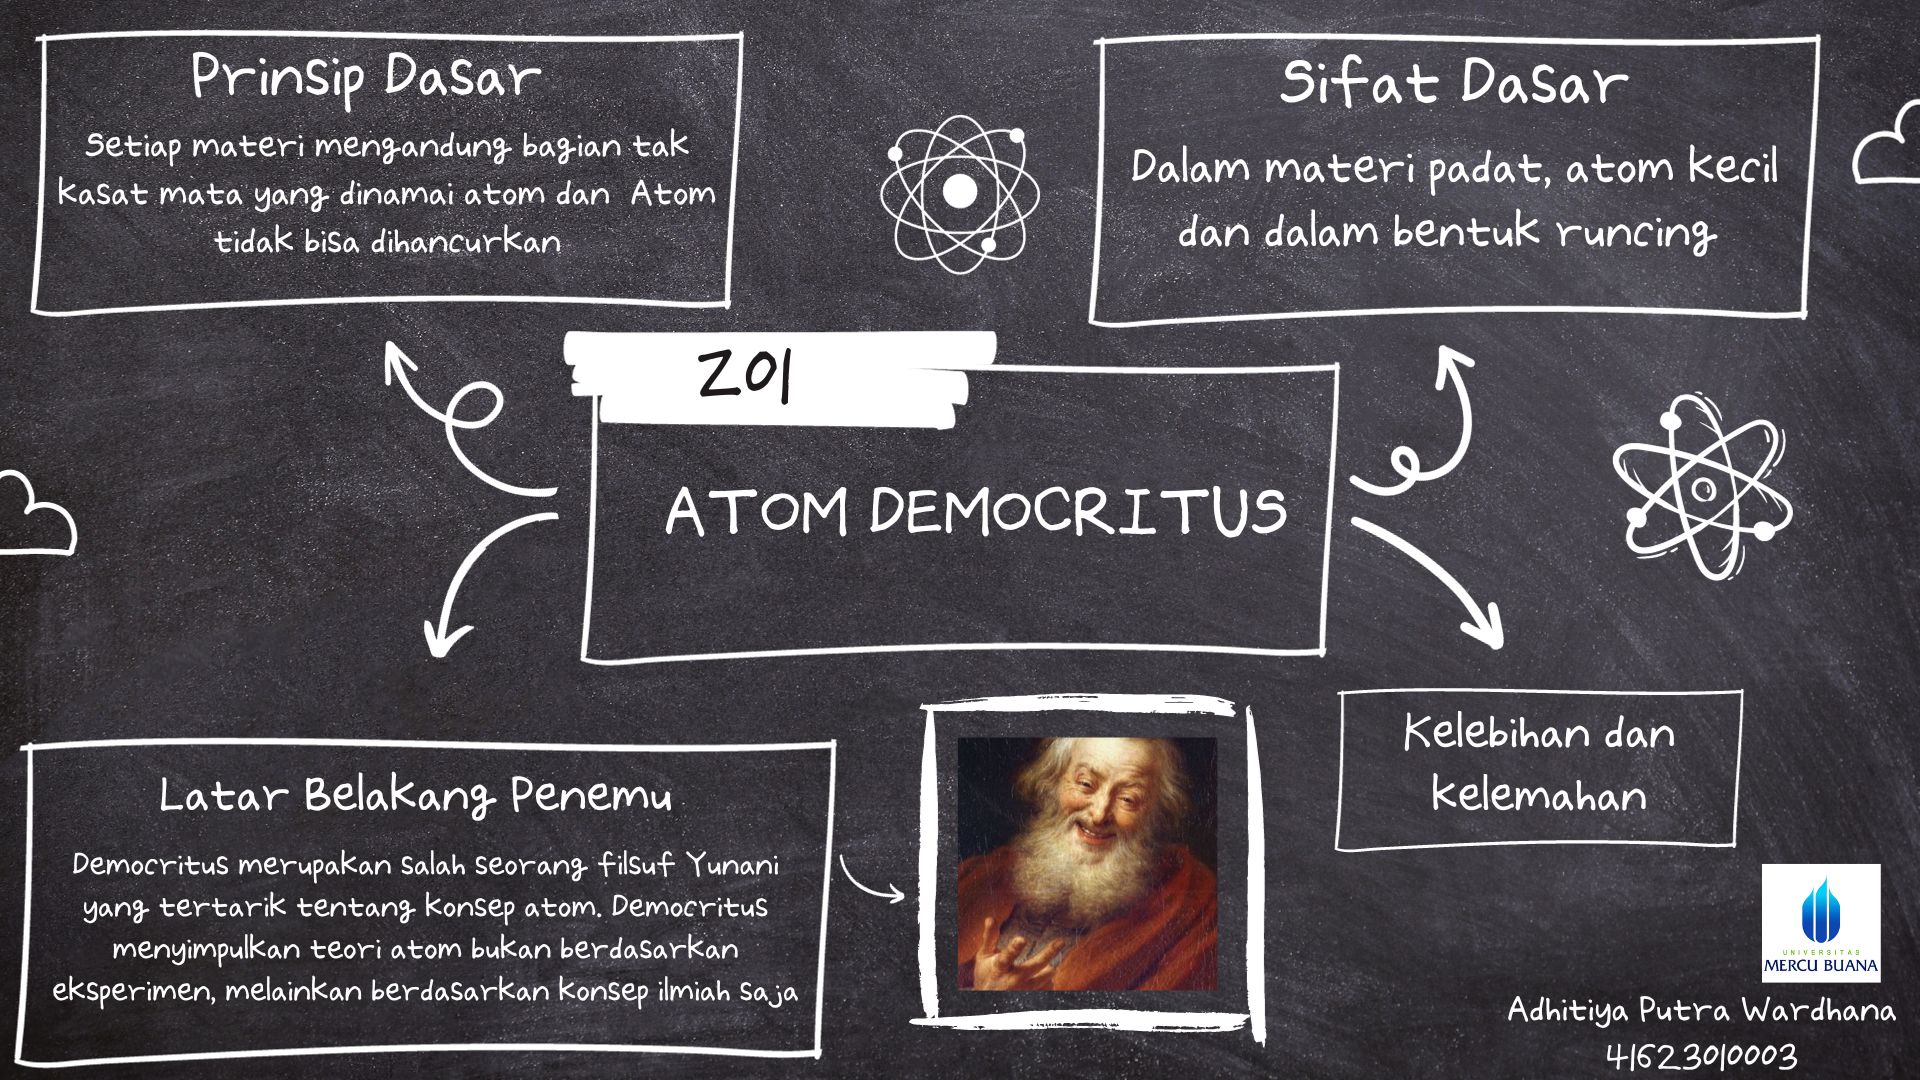 Prinsip Dasar
Setiap materi mengandung bagian tak
kasat mata yang dinamai atom dan Atom
tidak bisa dihancurkan
Sifat Dasar
Dalam materi padat, atom kecil
dan dalam bentuk runcing
Z01
ATOM DEMOCRITUS
Latar Belakang Penemu
Democritus merupakan salah seorang filsuf Yunani
yang tertarik tentang konsep atom. Democritus
menyimpulkan teori atom bukan berdasarkan
eksperimen, melainkan berdasarkan konsep ilmiah saja
Kelebihan dan
kelemahan
UNIVERSITAS
MERCU BUANA
Adhitiya Putra Wardhana
41623010003